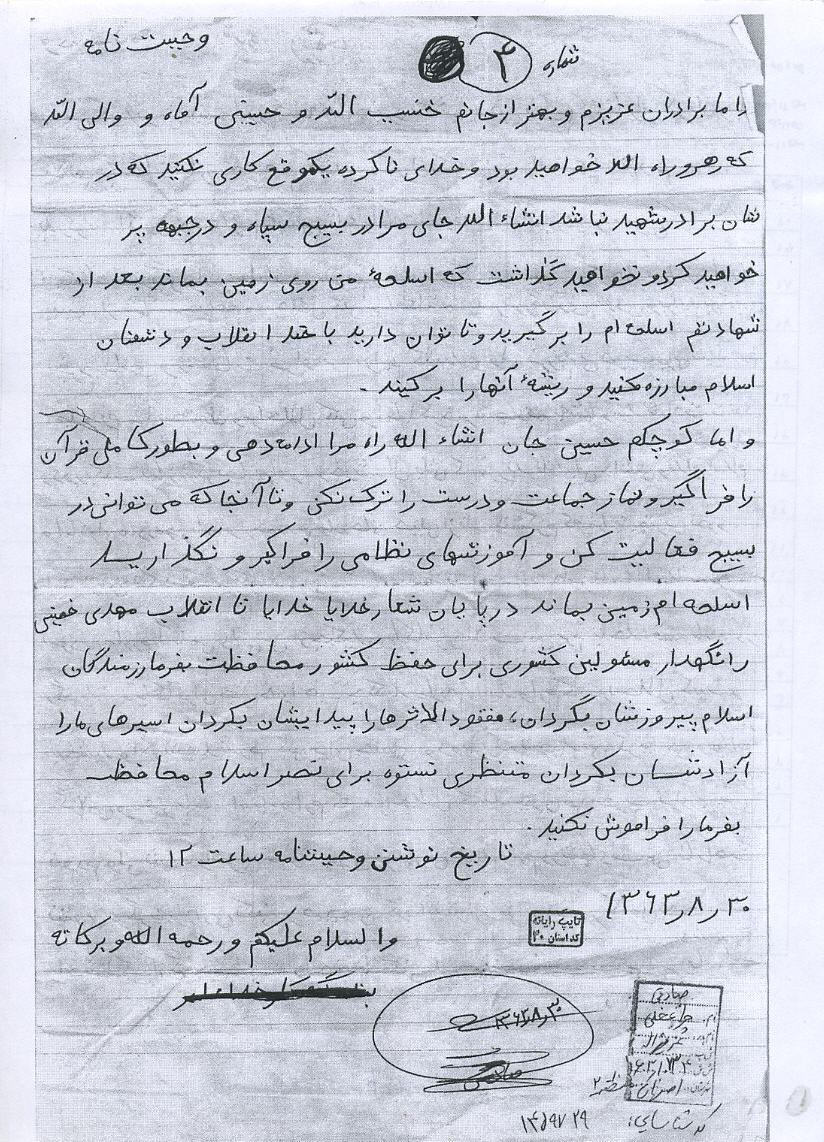 وصیت نامه
شماره ۴
و اما برادران عزیزم و بهتر از جانم حسب الله و حسینی آماه و والی الله
که رهرو راه الله خواهید بود و خدای ناکرده یکموقع کاری نکنید که در
شان برادر شهید نباشد انشاء الله جای مرا در بسیج سپاه و در جبهه پر
خواهید کرد و نخواهید گذاشت که اسلحهٔ من روی زمین بماند بعد از
شهادتم اسلحه ام را برگیرید و تا توان دارید با ضد انقلاب و دشمنان
اسلام مبارزه کنید و ریشهٔ آنها را برکنید .
و اما کوچکم حسین جان انشاء الله راه مرا ادامه دهی و بطور کامل قرآن
را فراگیر و نماز جماعت و درست را ترک نکن و تا آنجا که می توانی در
بسیج فعالیت کن و آموزشهای نظامی را فراگیر و نگذارید
اسلحه ام زمین بماند در پایان شعار خدایا خدایا تا انقلاب مهدی خمینی
را نگهدار مسئولین کشوری برای حفظ کشور محافظت بفرما رزمندگان
اسلام پیروزشان بگردان، مفقودالاثرها را پیدایشان بگردان اسیرهای ما را
آزادشان بگردان منتظری نستوه برای نصر اسلام محافظت
بفرما را فراموش نکنید .
تاریخ نوشتن وصیتنامه ساعت ۱۲
۳۰ر۸ر۱۳۶۳
والسلام علیکم و رحمه الله و برکاته
تایپ رایانه
کد استان ۳۰
۳۰ر۸ر۶۳
صادقی
صادقی
نام:
کد شناسایی: ۱۴۵۹۷۲۹